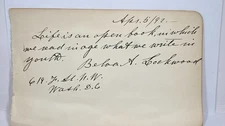 Apr. 5/90.
Life is an open book, in which
we read in age what we write in
youth.
Belva A. Lockwood
619. F. St. N.W.
Wash. D.C